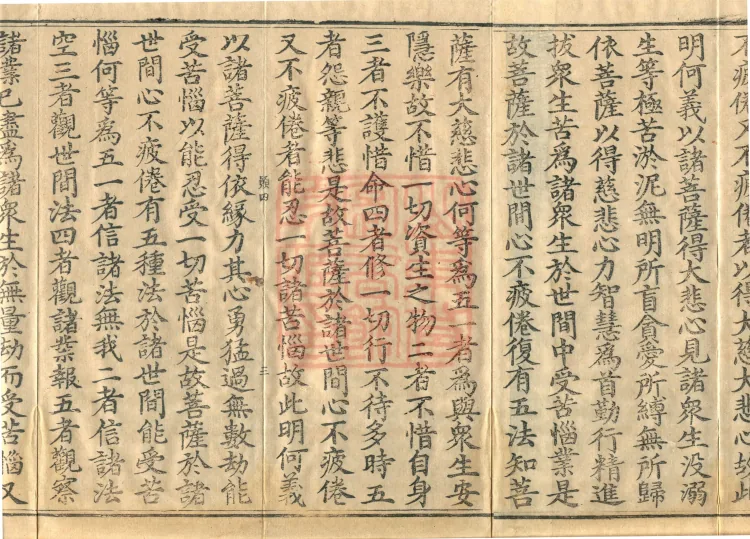 不疲倦又不疲倦者以得大慈大悲心故此
明何義以諸菩薩得大悲心見諸衆生没溺
生等極苦淤泥無明所盲貪愛所縛無所歸
依菩薩以得慈悲心力智慧爲首勤行精進
拔衆生苦爲諸衆生於世間中受苦惱業是
故菩薩於諸世間心不疲倦復有五法知菩
薩有大慈悲心何等爲五一者爲與衆生安
隱樂故不惜一切資生之物二者不惜自身
三者不護惜命四者修一切行不待多時五
者怨親等悲是故菩薩於諸世間心不疲倦
又不疲倦者能忍一切諸苦惱故此明何義
田 三
以諸菩薩得依緣力其心勇猛過無數劫能
受苦惱以能忍受一切苦惱是故菩薩於諸
世間心不疲倦有五種法於諸世間能受苦
惱何等爲五一者信諸法無我二者信諸法
空三者觀世間法四者觀諸業報五者觀察
諸業已盡爲諸衆生於無量劫而受苦惱又